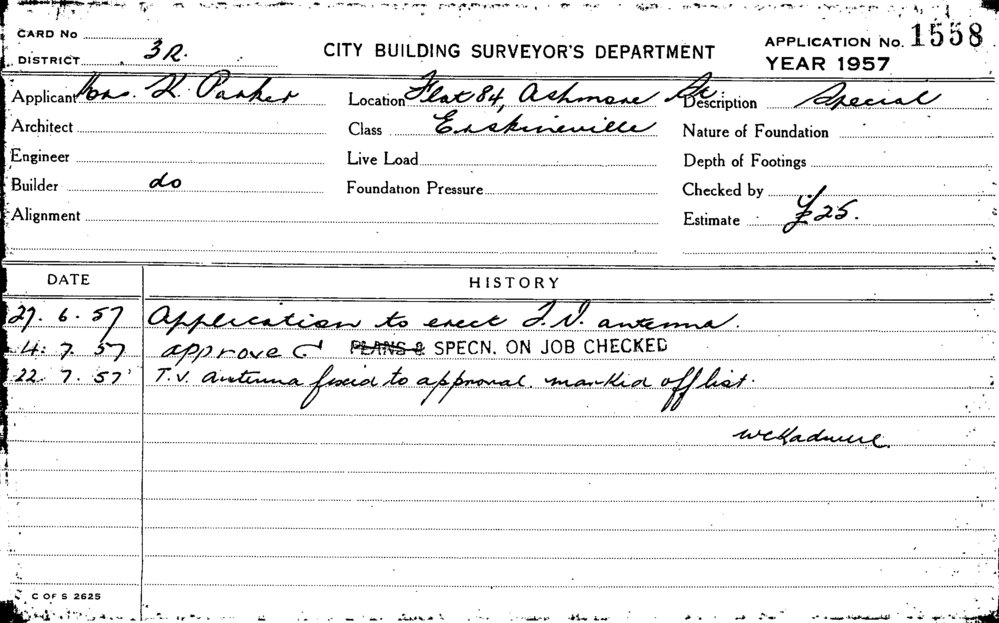 CARD No
DISTRICT 3R.
CITY BUILDING SURVEYOR'S DEPARTMENT
APPLICATION No. 1558
YEAR 1957
Applicant Mrs. K. Parker
Location Flat 84, Ashmore St
Description Special
Architect
Class Erskineville
Nature of Foundation
Engineer
Live Load
Depth of Footings
Builder do
Foundation Pressure
Checked by
Alignment
Estimate £25.
DATE
HISTORY
27. 6. 57 Application to erect T.V. antenna.
4. 7. 57 approved PLANS & SPECN. ON JOB CHECKED
22. 7. 57 T.V. antenna fixed to approval. marked off list.
C OF S 2625